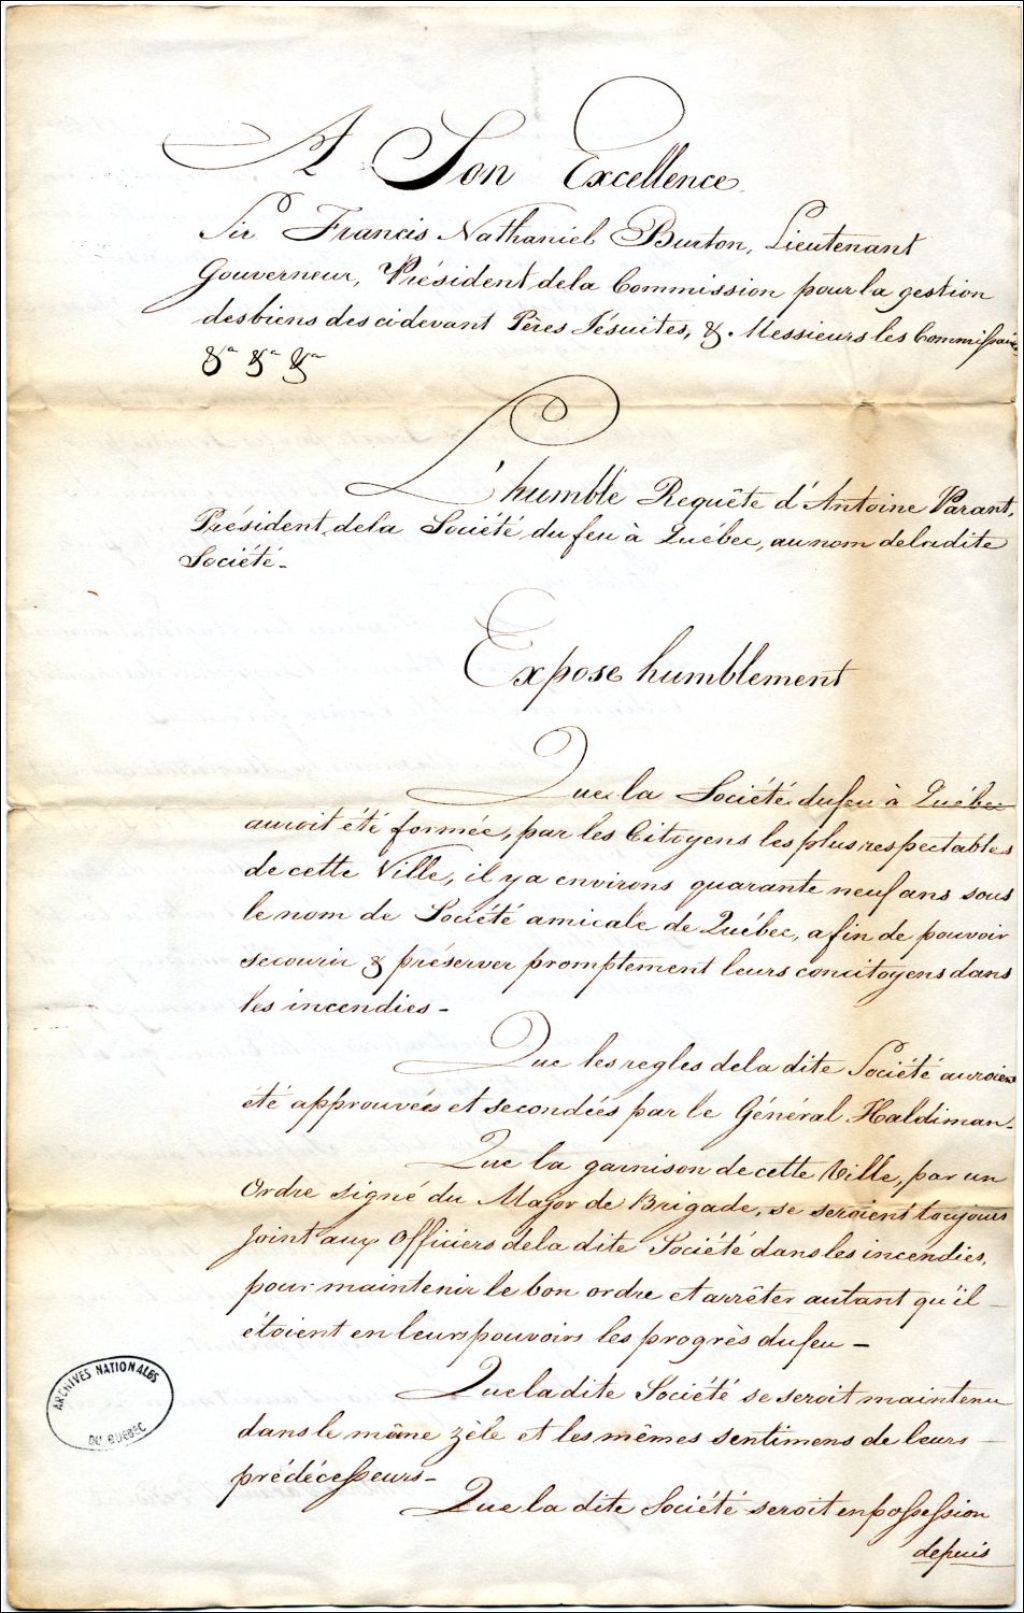 A Son Excellence
Sir Francis Nathaniel Burton, Lieutenant
Gouverneur, Président dela Commission pour la gestion
des biens des ci devant Pères Jésuites, & Messieurs les Commissaires
&a &a &a
L'humble Requête d'Antoine Parant,
Président, dela Société du feu à Québec, au nom de la dite
Société -
Expose humblement
Que la Société du feu à Québec
auroit été formée, par les Citoyens les plus respectables
de cette Ville, il y a environs quarante neuf ans sous
le nom de Société amicale de Québec, afin de pouvoir
secourir & préserver promptement leurs concitoyens dans
les incendies -
Que les regles dela dite Société auroient
été approuvées et secondées par le Général Haldiman -
Que la garnison de cette Ville, par un
Ordre signé du Major de Brigade, se seroient toujours
Joint aux Officiers dela dite Société dans les incendies,
pour maintenir le bon ordre et arrêter autant qu'il
étoient en leurs pouvoirs les progrès du feu -
Que la dite Société se seroit maintenu
dans le même zèle et les mêmes sentimens de leurs
prédécesseurs -
Que la dite Société seroit en possession
depuis
ARCHIVES NATIONALES
DU QUEBEC